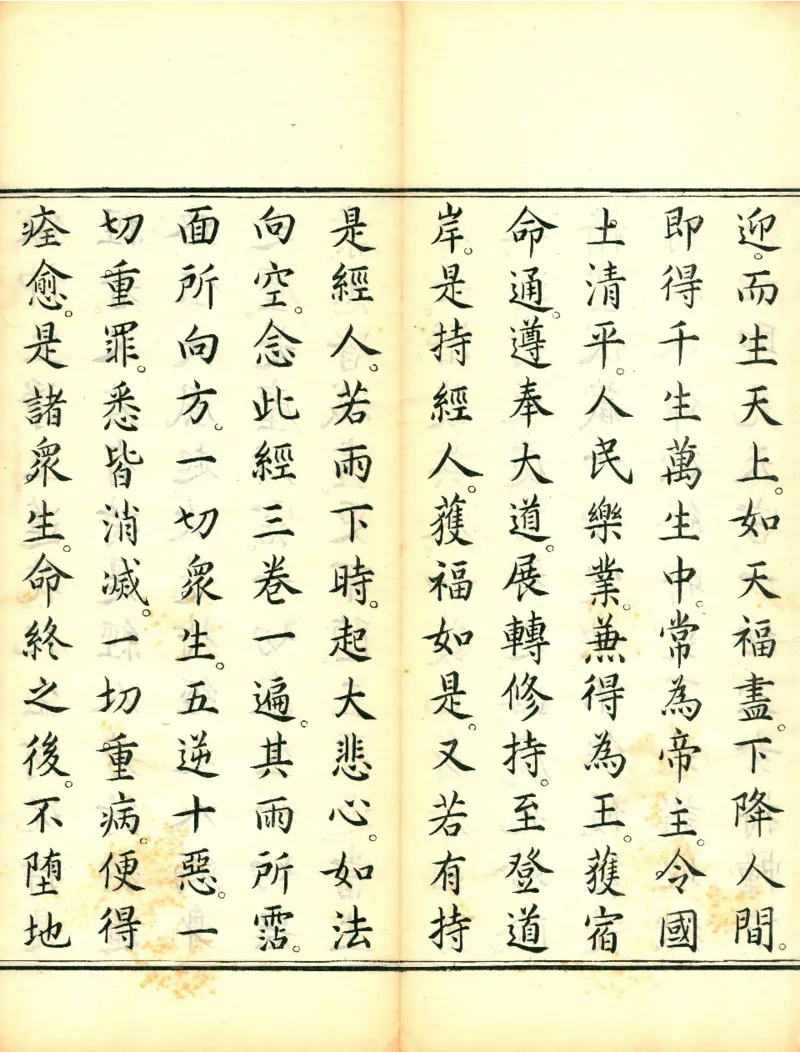 迎。而生天上。如天福盡。下降人間。
即得千生萬生中。常為帝主。令國
土清平。人民樂業。兼得為王。獲宿
命通。遵奉大道。展轉修持。至登道
岸。是持經人。獲福如是。又若有持
是經人。若雨下時。起大悲心。如法
向空。念此經三卷一遍。其雨所霑。
面所向方。一切眾生。五逆十惡。一
切重罪。悉皆消滅。一切重病。便得
痊愈。是諸眾生。命終之後。不墮地